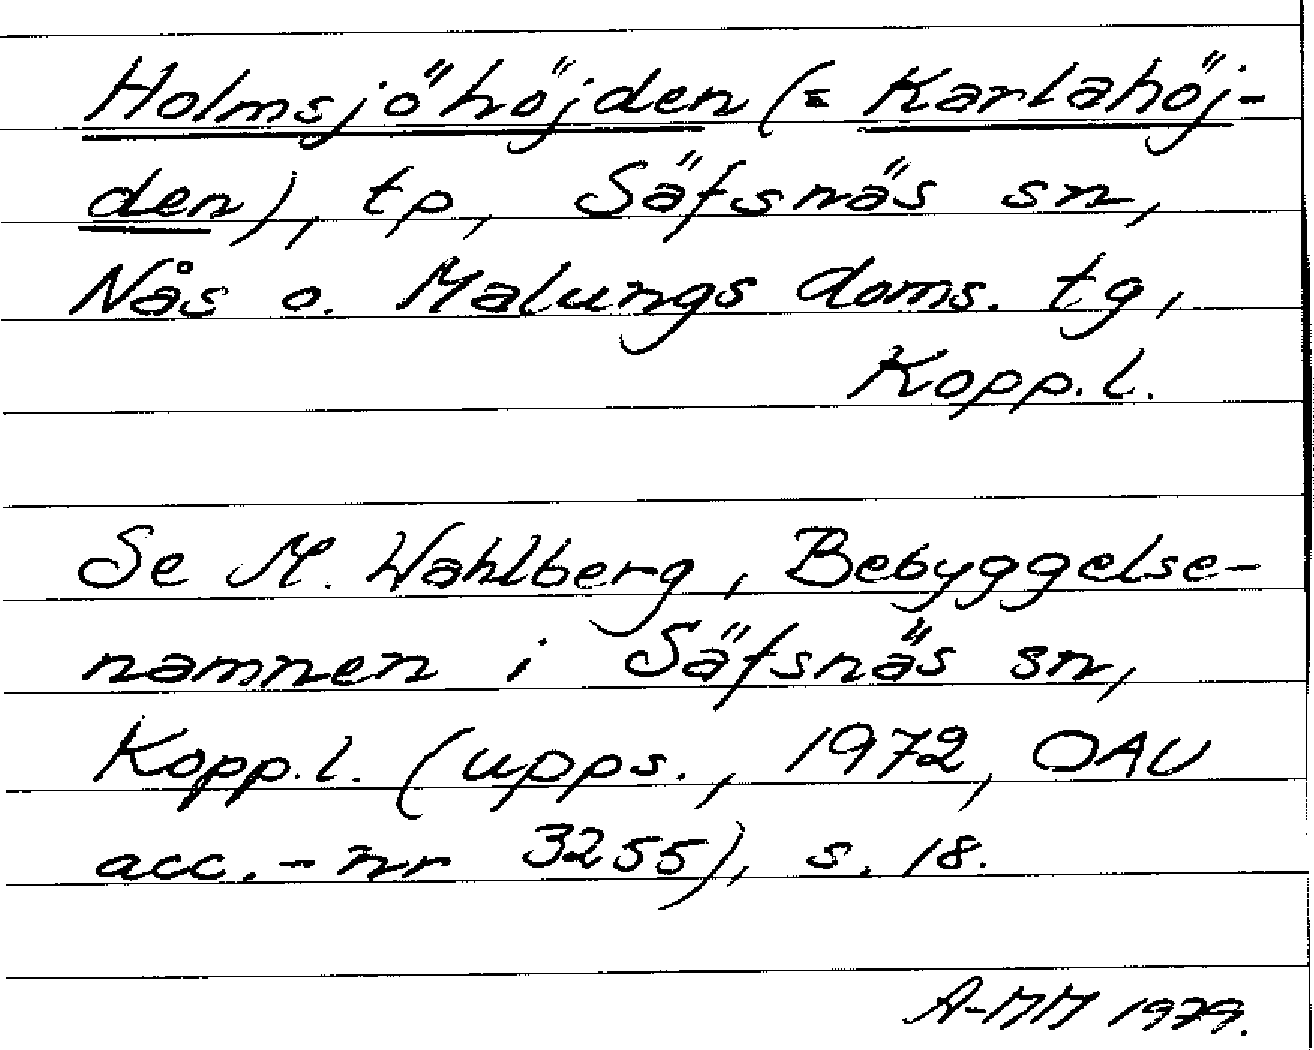 Holmsjöhöjden (= Karlahöj-
den), tp, Säfsnäs sn,
Nås o. Malungs doms. tg,
Kopp.l.
Se M. Wahlberg, Bebyggelse-
namnen i Säfsnäs sn,
Kopp.l. (upps., 1972, OAU
acc.-nr 3255), s. 18.
A-MM 1979.